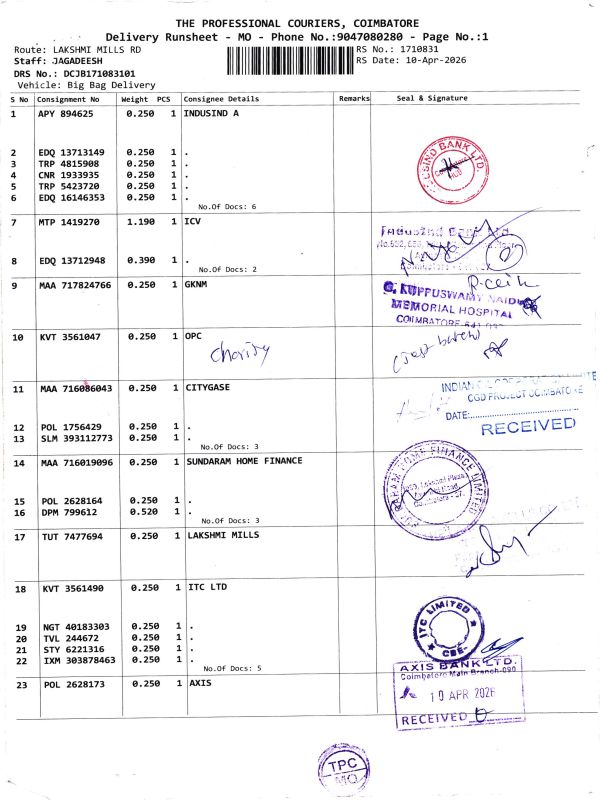 THE PROFESSIONAL COURIERS, COIMBATORE
Delivery Runsheet - MO - Phone No.:9047080280 - Page No.:1
Route: LAKSHMI MILLS RD
RS No.: 1710831
Staff: JAGADEESH
RS Date: 10-Apr-2026
DRS No.: DCJB171083101
Vehicle: Big Bag Delivery
S No Consignment No Weight PCS Consignee Details Remarks Seal & Signature
1 APY 894625 0.250 1 INDUSIND A
2 EDQ 13713149 0.250 1 .
3 TRP 4815908 0.250 1 .
4 CNR 1933935 0.250 1 .
5 TRP 5423720 0.250 1 .
6 EDQ 16146353 0.250 1 .
No.Of Docs: 6
BANK LTD.
7 MTP 1419270 1.190 1 ICV
8 EDQ 13712948 0.390 1 .
No.Of Docs: 2
IndusInd Bank Ltd
9 MAA 717824766 0.250 1 GKNM
G. KUPPUSWAMY NAIDU
MEMORIAL HOSPITAL
COIMBATORE
10 KVT 3561047 0.250 1 OPC
Charity
11 MAA 716086043 0.250 1 CITYGASE
12 POL 1756429 0.250 1 .
13 SLM 393112773 0.250 1 .
No.Of Docs: 3
CGD PROJECT COIMBATORE
DATE:
RECEIVED
14 MAA 716019096 0.250 1 SUNDARAM HOME FINANCE
15 POL 2628164 0.250 1 .
16 DPM 799612 0.520 1 .
No.Of Docs: 3
SUNDARAM HOME FINANCE LIMITED
17 TUT 7477694 0.250 1 LAKSHMI MILLS
18 KVT 3561490 0.250 1 ITC LTD
19 NGT 40183303 0.250 1 .
20 TVL 244672 0.250 1 .
21 STY 6221316 0.250 1 .
22 IXM 303878463 0.250 1 .
No.Of Docs: 5
ITC LIMITED
CBE
23 POL 2628173 0.250 1 AXIS
AXIS BANK LTD.
Coimbatore Main Branch-090
10 APR 2026
RECEIVED
TPC
MO